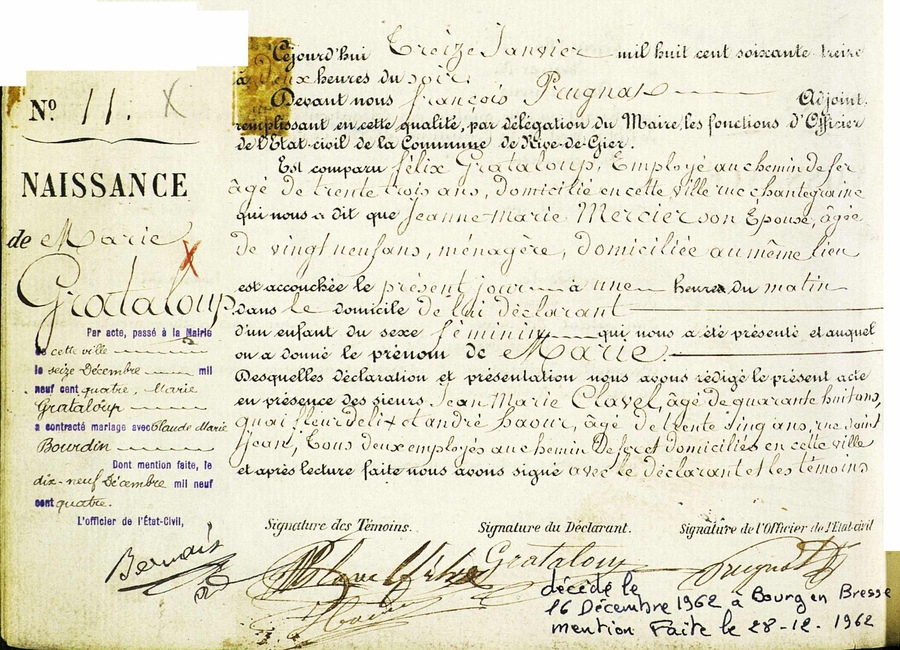 Nº 11. X
NAISSANCE
de Marie
Grataloup
Par acte, passé à la Mairie
de cette ville
le seize Décembre mil
neuf cent quatre, Marie
Grataloup
a contracté mariage avec Claude Marie
Bourdin
Dont mention faite, le
dix-neuf Décembre mil neuf
cent quatre.
L'officier de l'État-Civil,
Cejourd'hui Treize Janvier mil huit cent soixante-treize
à deux heures du soir.
Devant nous françois Prugnat Adjoint.
remplissant en cette qualité, par délégation du Maire, les fonctions d'Officier
de l'Etat-civil de la Commune de Rive-de-Gier.
Est comparu félix Grataloup, Employé au chemin de fer
âgé de trente trois ans, domicilié en cette ville rue chantegraine
qui nous a dit que Jeanne-Marie Mercier son Epouse, âgée
de vingt neuf ans, ménagère, domiciliée au même lieu
est accouchée le présent jour à une heure du matin
dans le domicile de lui déclarant
d'un enfant du sexe féminin qui nous a été présenté et auquel
on a donné le prénom de Marie.
Desquelles déclaration et présentation nous avons rédigé le présent acte
en présence des sieurs Jean Marie Clavel, âgé de quarante huit ans,
quai fleur de lix et andré haour, âgé de trente cinq ans, rue saint
Jean, tous deux employés au chemin de fer et domiciliés en cette ville
et après lecture faite nous avons signé avec le déclarant et les témoins
Signature des Témoins. Signature du Déclarant. Signature de l'Officier de l'Etat-civil
Grataloup Prugnat
décédé le
16 Décembre 1962 à Bourg en Bresse
mention Faite le 28-12-1962